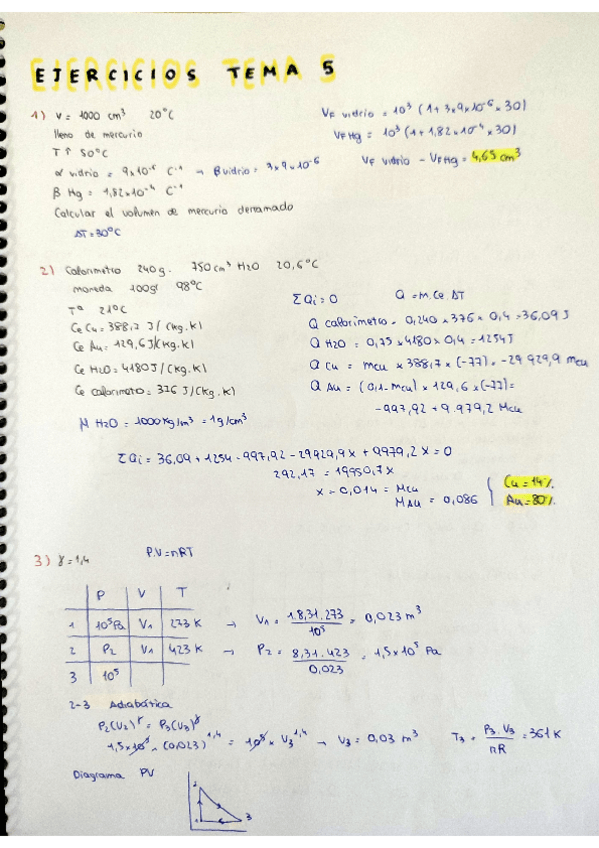 EJERCICIOS TEMA 5
1) V = 1000 cm³ 20°C
lleno de mercurio
T↑ 50°C
α vidrio = 9x10⁻⁶ C⁻¹ → β vidrio = 3x9x10⁻⁶
β Hg = 1,82x10⁻⁴ C⁻¹
Calcular el volumen de mercurio derramado
ΔT = 30°C
VF vidrio = 10³ (1 + 3x9x10⁻⁶ x 30)
VF Hg = 10³ (1 + 1,82x10⁻⁴ x 30)
VF vidrio - VF Hg = 4,65 cm³
2) Calorimetro 240g. 750 cm³ H2O 20,6°C
moneda 100gr 98°C
Tª 21°C
Ce Cu = 388,7 J/(kg.K)
Ce Au = 129,6 J/(kg.K)
Ce H2O = 4180 J/(kg.K)
Ce calorimetro = 376 J/(kg.K)
μ H2O = 1000 kg/m³ = 1g/cm³
ΣQi = 0 Q = m.Ce.ΔT
Q calorimetro = 0,240 x 376 x 0,4 = 36,09 J
Q H2O = 0,75 x 4180 x 0,4 = 1254 J
Q Cu = mcu x 388,7 x (-77) = -29929,9 mcu
Q Au = (0,1 - mcu) x 129,6 x (-77) =
-997,92 + 9979,2 Mcu
ΣQi = 36,09 + 1254 - 997,92 - 29929,9x + 9979,2x = 0
292,17 = 19950,7x
x = 0,014 = Mcu
MAu = 0,086
Cu = 14%
Au = 80%
3) γ = 1,4 P.V = nRT
P V T
1 10⁵Pa V1 273 K → V1 = 1.8,31.273 / 10⁵ = 0,023 m³
2 P2 V1 423 K → P2 = 8,31.423 / 0,023 = 1,5x10⁵ Pa
3 10⁵
2-3 Adiabática
P2(V2)^γ = P3(V3)^γ
1,5x10⁵ . (0,023)^1,4 = 10⁵ x V3^1,4 → V3 = 0,03 m³ T3 = P3.V3 / nR = 361 K
Diagrama PV
2
1 3